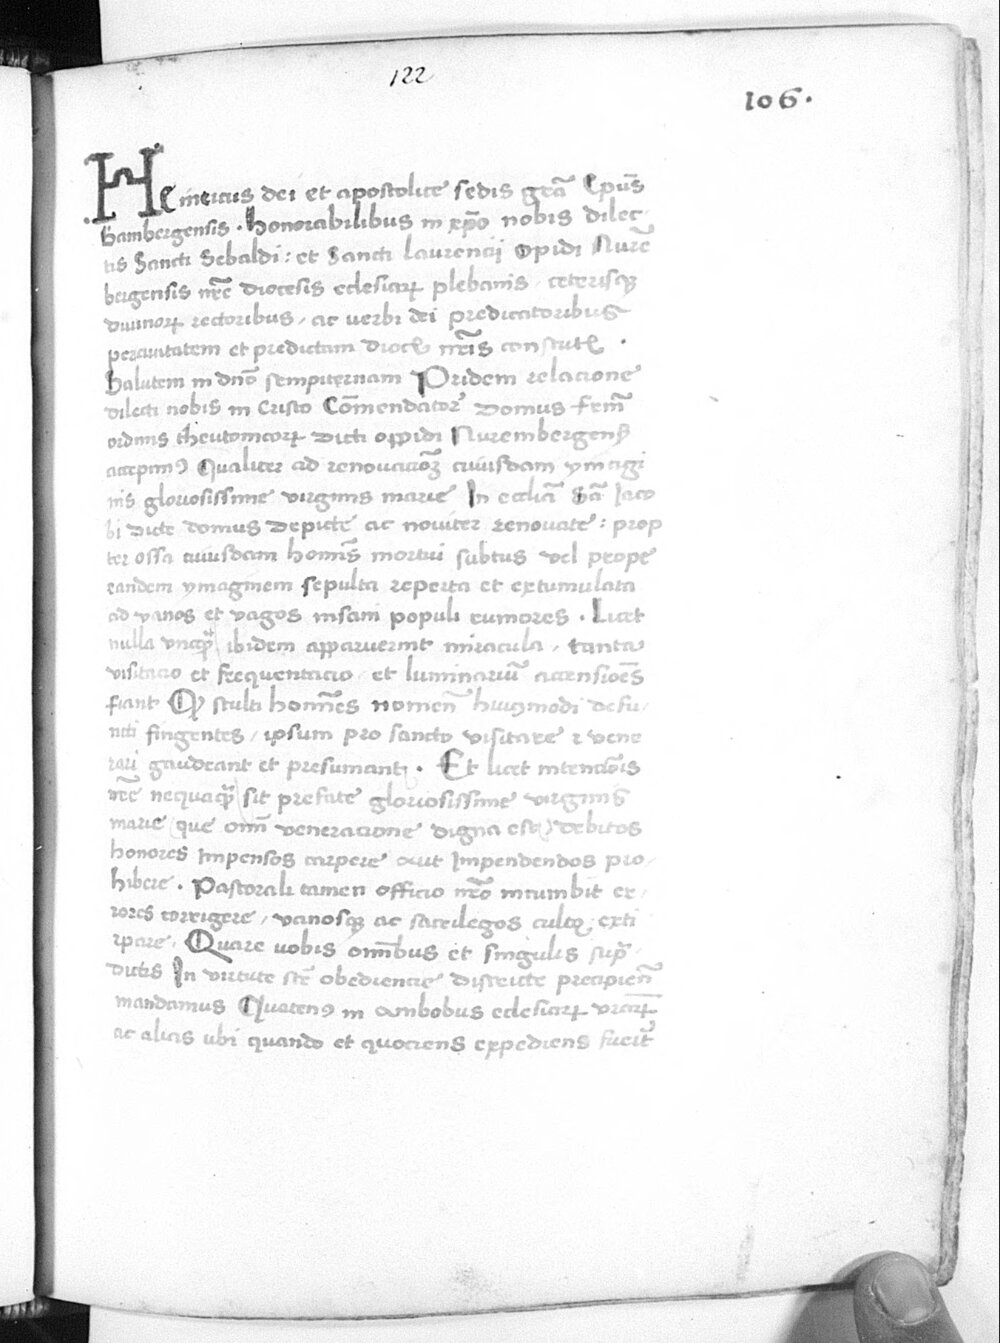 122
106.
Heinricus dei et apostolice sedis gr̄a Ep̄us
Bambergensis. Honorabilibus in xp̄o nobis dilec-
tis Sancti Sebaldi: et Sancti laurencij Opidi Nurē
bergensis nrē diocesis eclesiarꝝ plebanis, ceterisqꝫ
diuinorꝝ rectoribus, ac uerbi dei predicatoribus
per ciuitatem et predictam dioc̄ nr̄is constitut̄.
Salutem in dn̄o sempiternam Pridem relacione
dilecti nobis in cristo Cōmendator̄ domus frm̄
ordinis theutonicorꝝ dicti oppidi Nurembergens̄
accepimꝰ Qualiter ad renouacioꝫ cuiusdam ymagi
nis gloriosissime virginis marie In eccliā Sc̄i Jaco
bi dicte domus depicte ac nouiter renouate: prop
ter ossa cuiusdam homīs mortui subtus vel prope
eandem ymaginem sepulta reperta et extumulata
ad vanos et vagos insani populi rumores. Licet
nulla vnqꝫ ibidem apparuerint miracula, tanta
visitacio et frequentacio et luminariū accensiones
fiant Qꝫ stulti homīes nomen̄ huiꝰmodi defu,
ncti fingentes, ipsum pro sancto visitare ⁊ vene
rari gaudeant et presumant. Et licet intencōis
nrē nequaqꝫ sit prefate gloriosissime virginis
marie (que omī veneracione digna est) debitos
honores Impensos carpere aut Impendendos pro,
hibere. Pastorali tamen officio nrō incumbit er,
rores corrigere, vanosqꝫ ac sacrilegos cultꝰ exti
rpare, Quare uobis omībus et singulis sup̄
dictis In virtute scē obediencie districte precipien̄
mandamus Quatenꝰ in ambobus eclesiarꝝ vrarꝝ
ac alias ubi quando et quociens expediens fuerit